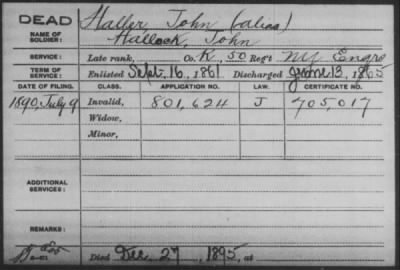 DEAD Haller John (alias)
NAME OF SOLDIER: Hallock, John
SERVICE: Late rank, Co. K, 50 Reg't NY Engrs
TERM OF SERVICE: Enlisted Sept. 16, 1861 Discharged June 13, 1865
DATE OF FILING. CLASS. APPLICATION NO. LAW. CERTIFICATE NO.
1890, July 9 Invalid, 801,624 J 705,017
Widow,
Minor,
ADDITIONAL SERVICES:
REMARKS:
Died Dec. 27, 1895, at